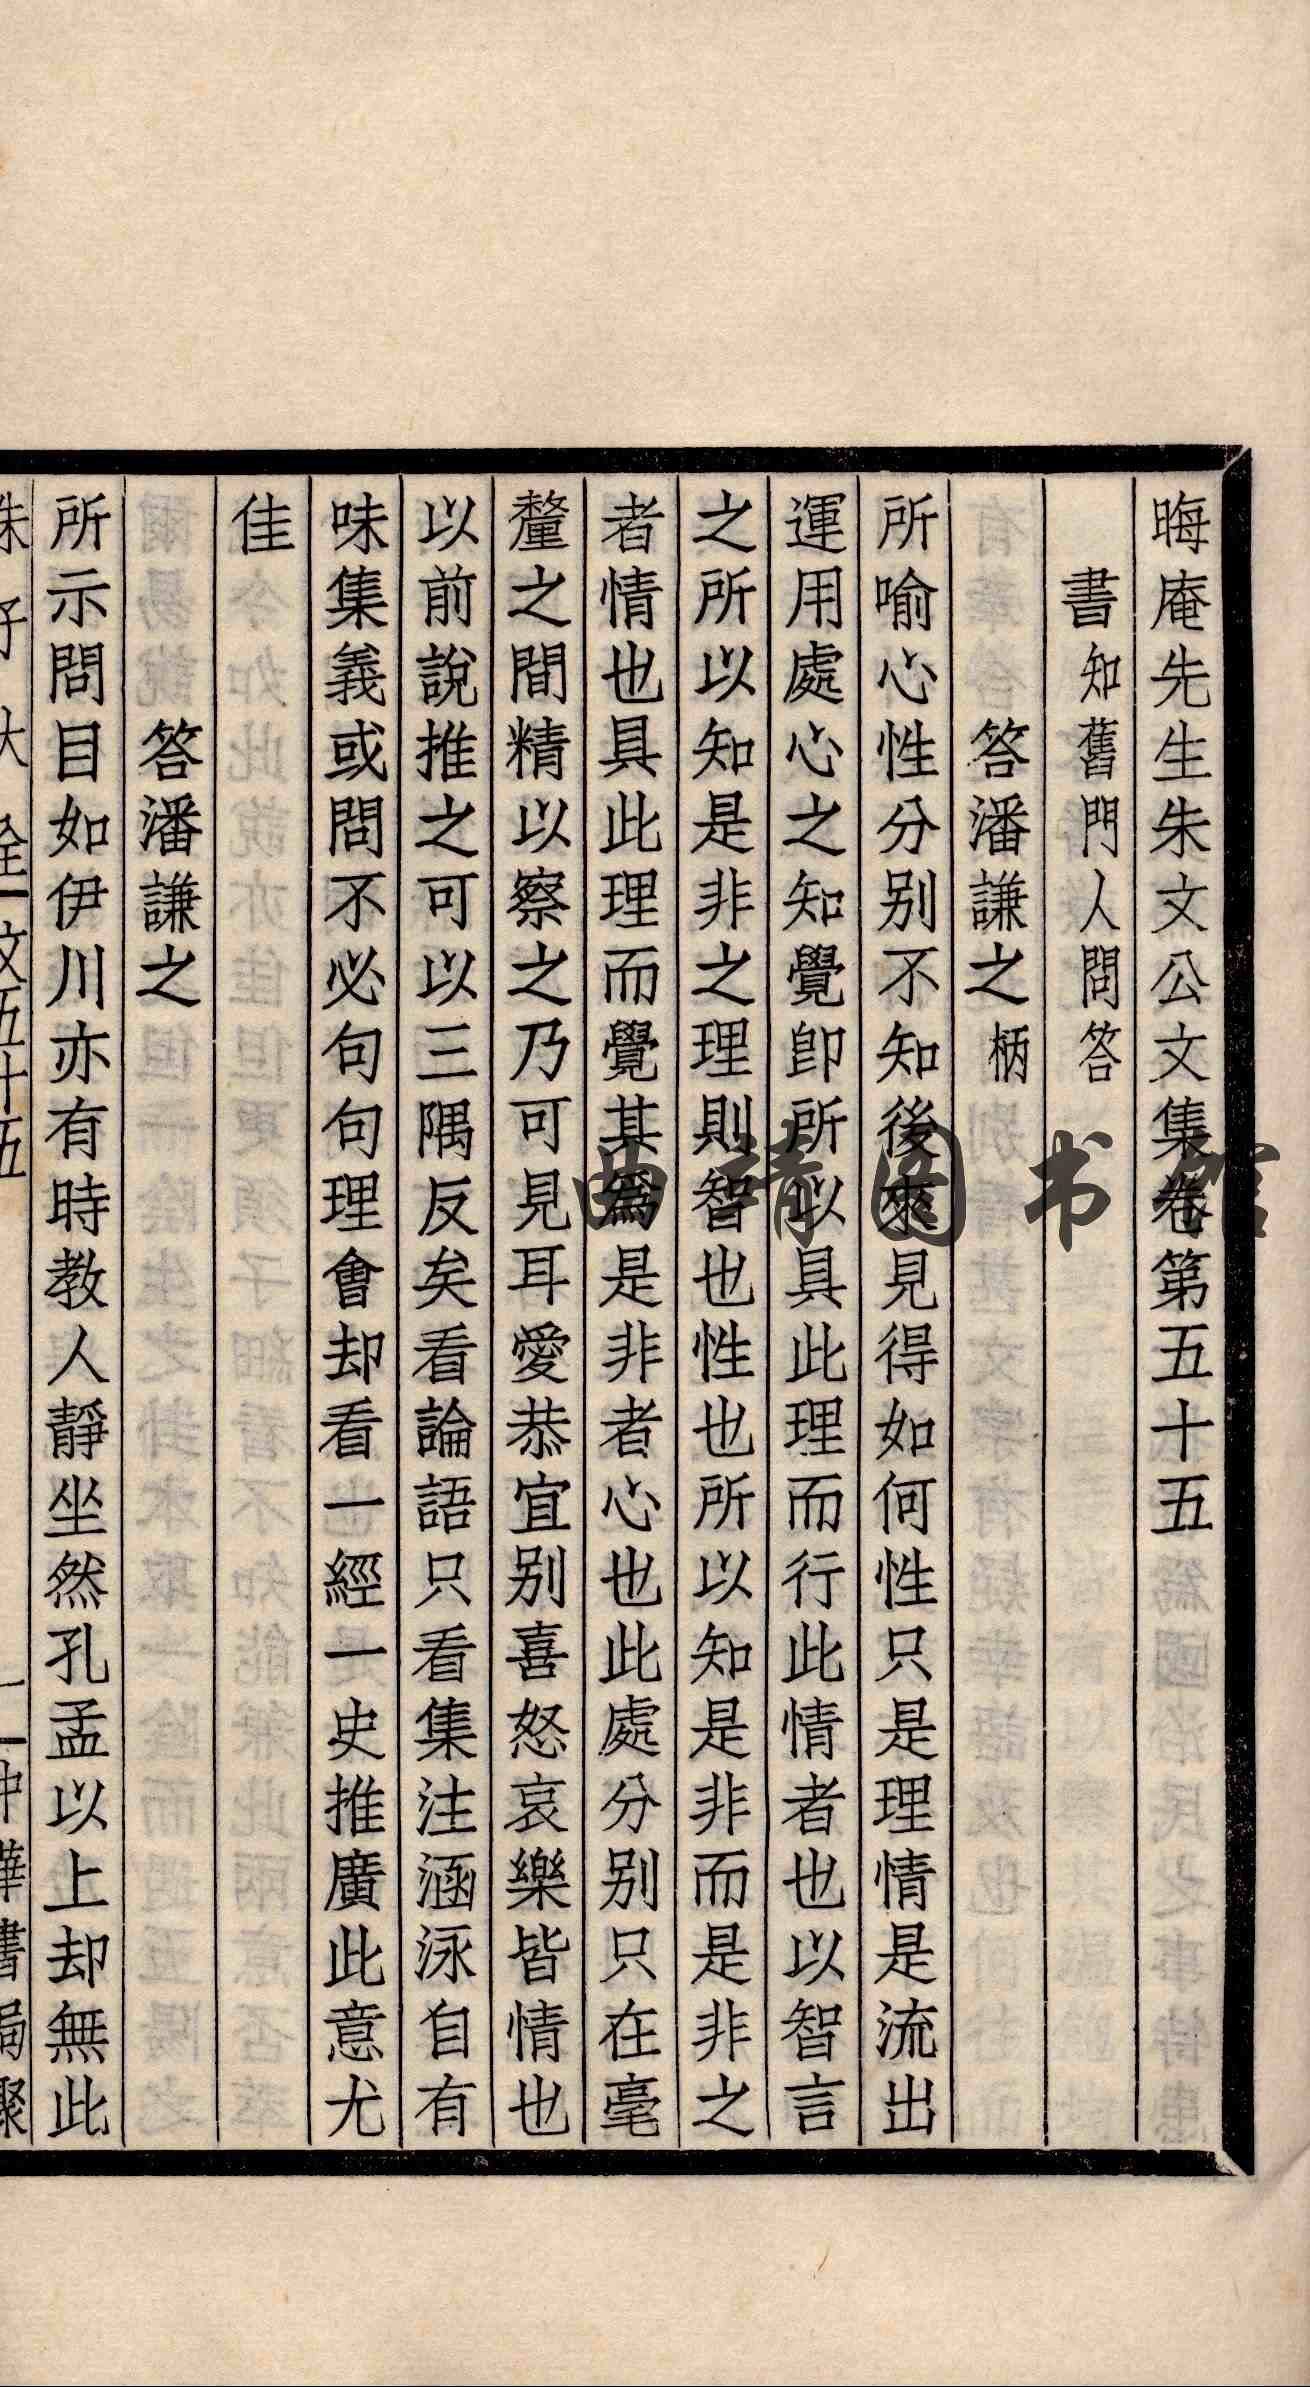 晦庵先生朱文公文集卷第五十五
書知舊門人問答
答潘謙之柄
所喻心性分别不知後來見得如何性只是理情是流出
運用處心之知覺卽所以具此理而行此情者也以智言
之所以知是非之理則智也性也所以知是非而是非之
者情也具此理而覺其爲是非者心也此處分别只在毫
釐之間精以察之乃可見耳愛恭宜别喜怒哀樂皆情也
以前說推之可以三隅反矣看論語只看集注涵泳自有
味集義或問不必句句理會却看一經一史推廣此意尤
佳
答潘謙之
所示問目如伊川亦有時教人靜坐然孔孟以上却無此
朱子大全 文五十五
中華書局聚
曲靖图书馆